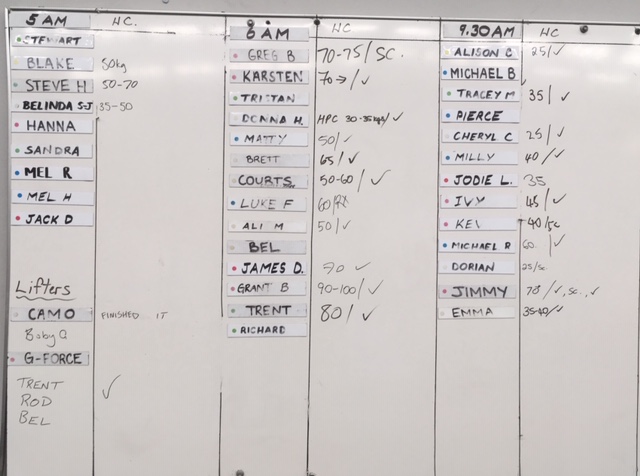 5 AM HC.
STEWART
BLAKE 50kg
STEVE H 50-70
BELINDA S-J 35-50
HANNA
SANDRA
MEL R
MEL H
JACK D
Lifters
CAMO FINISHED IT
Baby G
G-FORCE
TRENT ✓
ROD
BEL
6 AM HC
GREG B 70-75/ SC.
KARSTEN 70→/✓
TRISTAN
DONNA H. HPC 30-35kgs/✓
MATTY 50/✓
BRETT 65/✓
COURTS 50-60/✓
LUKE F 60/RX
ALI M 50/✓
BEL
JAMES D. 90 ✓
GRANT B 90-100/✓
TRENT 80/✓
RICHARD
9.30AM HC
ALISON C 25/✓
MICHAEL B
TRACEY M 35/✓
PIERCE
CHERYL C 25/✓
MILLY 40/✓
JODIE L. 35
IVY 45/✓
KEV 40/sc
MICHAEL R 60 /✓
DORIAN 25/sc
JIMMY 70/✓, sc, ✓
EMMA 35-40/✓